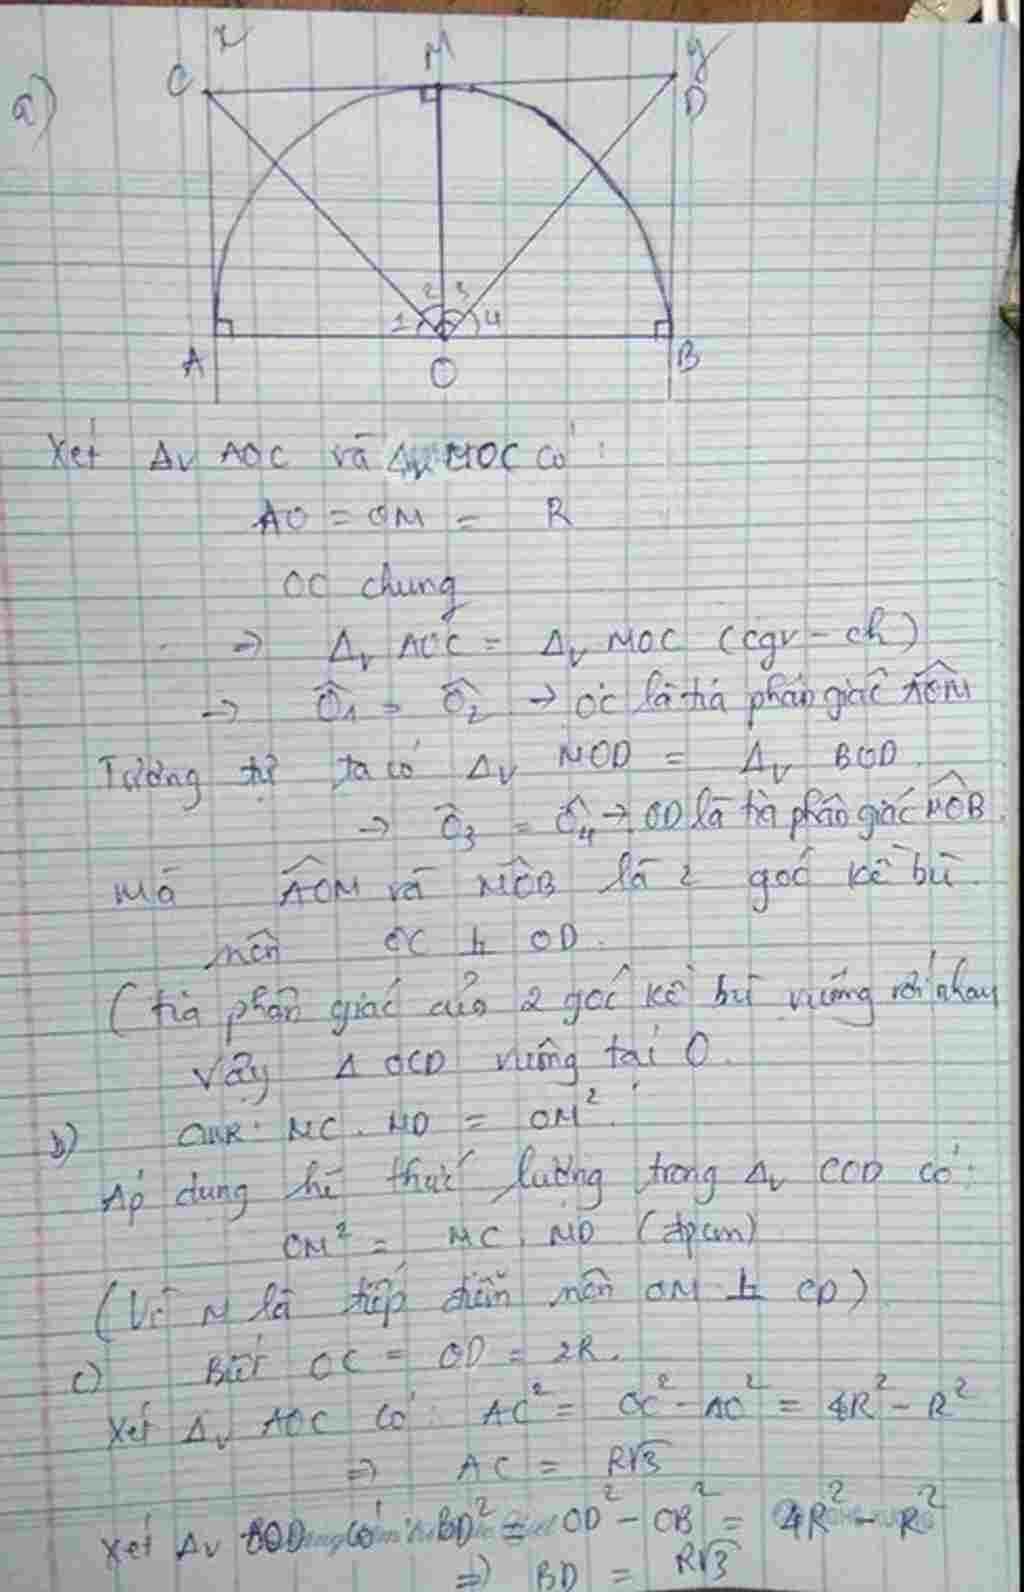 a)
x
C M y
D
2 3
1 4
A O B
Xét Δv AOC và Δv MOC có:
AO = OM = R
OC chung
⇒ Δv AOC = Δv MOC (cgv - ch)
→ Ô1 = Ô2 → OC là tia phân giác AÔM
Tương tự ta có Δv MOD = Δv BOD
→ Ô3 = Ô4 → OD là tia phân giác MÔB.
Mà AÔM và MÔB là 2 góc kề bù.
nên OC ⊥ OD.
(tia phân giác của 2 góc kề bù vuông với nhau
Vậy Δ OCD vuông tại O.
b) CMR: MC . MD = OM².
Áp dụng hệ thức lượng trong Δv COD có:
OM² = MC . MD (đpcm)
(Vì M là tiếp điểm nên OM ⊥ CD)
c) Biết OC = OD = 2R.
Xét Δv AOC có: AC² = OC² - AO² = 4R² - R²
⇒ AC = R√3
Xét Δv BOD có: BD² = OD² - OB² = 4R² - R²
⇒ BD = R√3